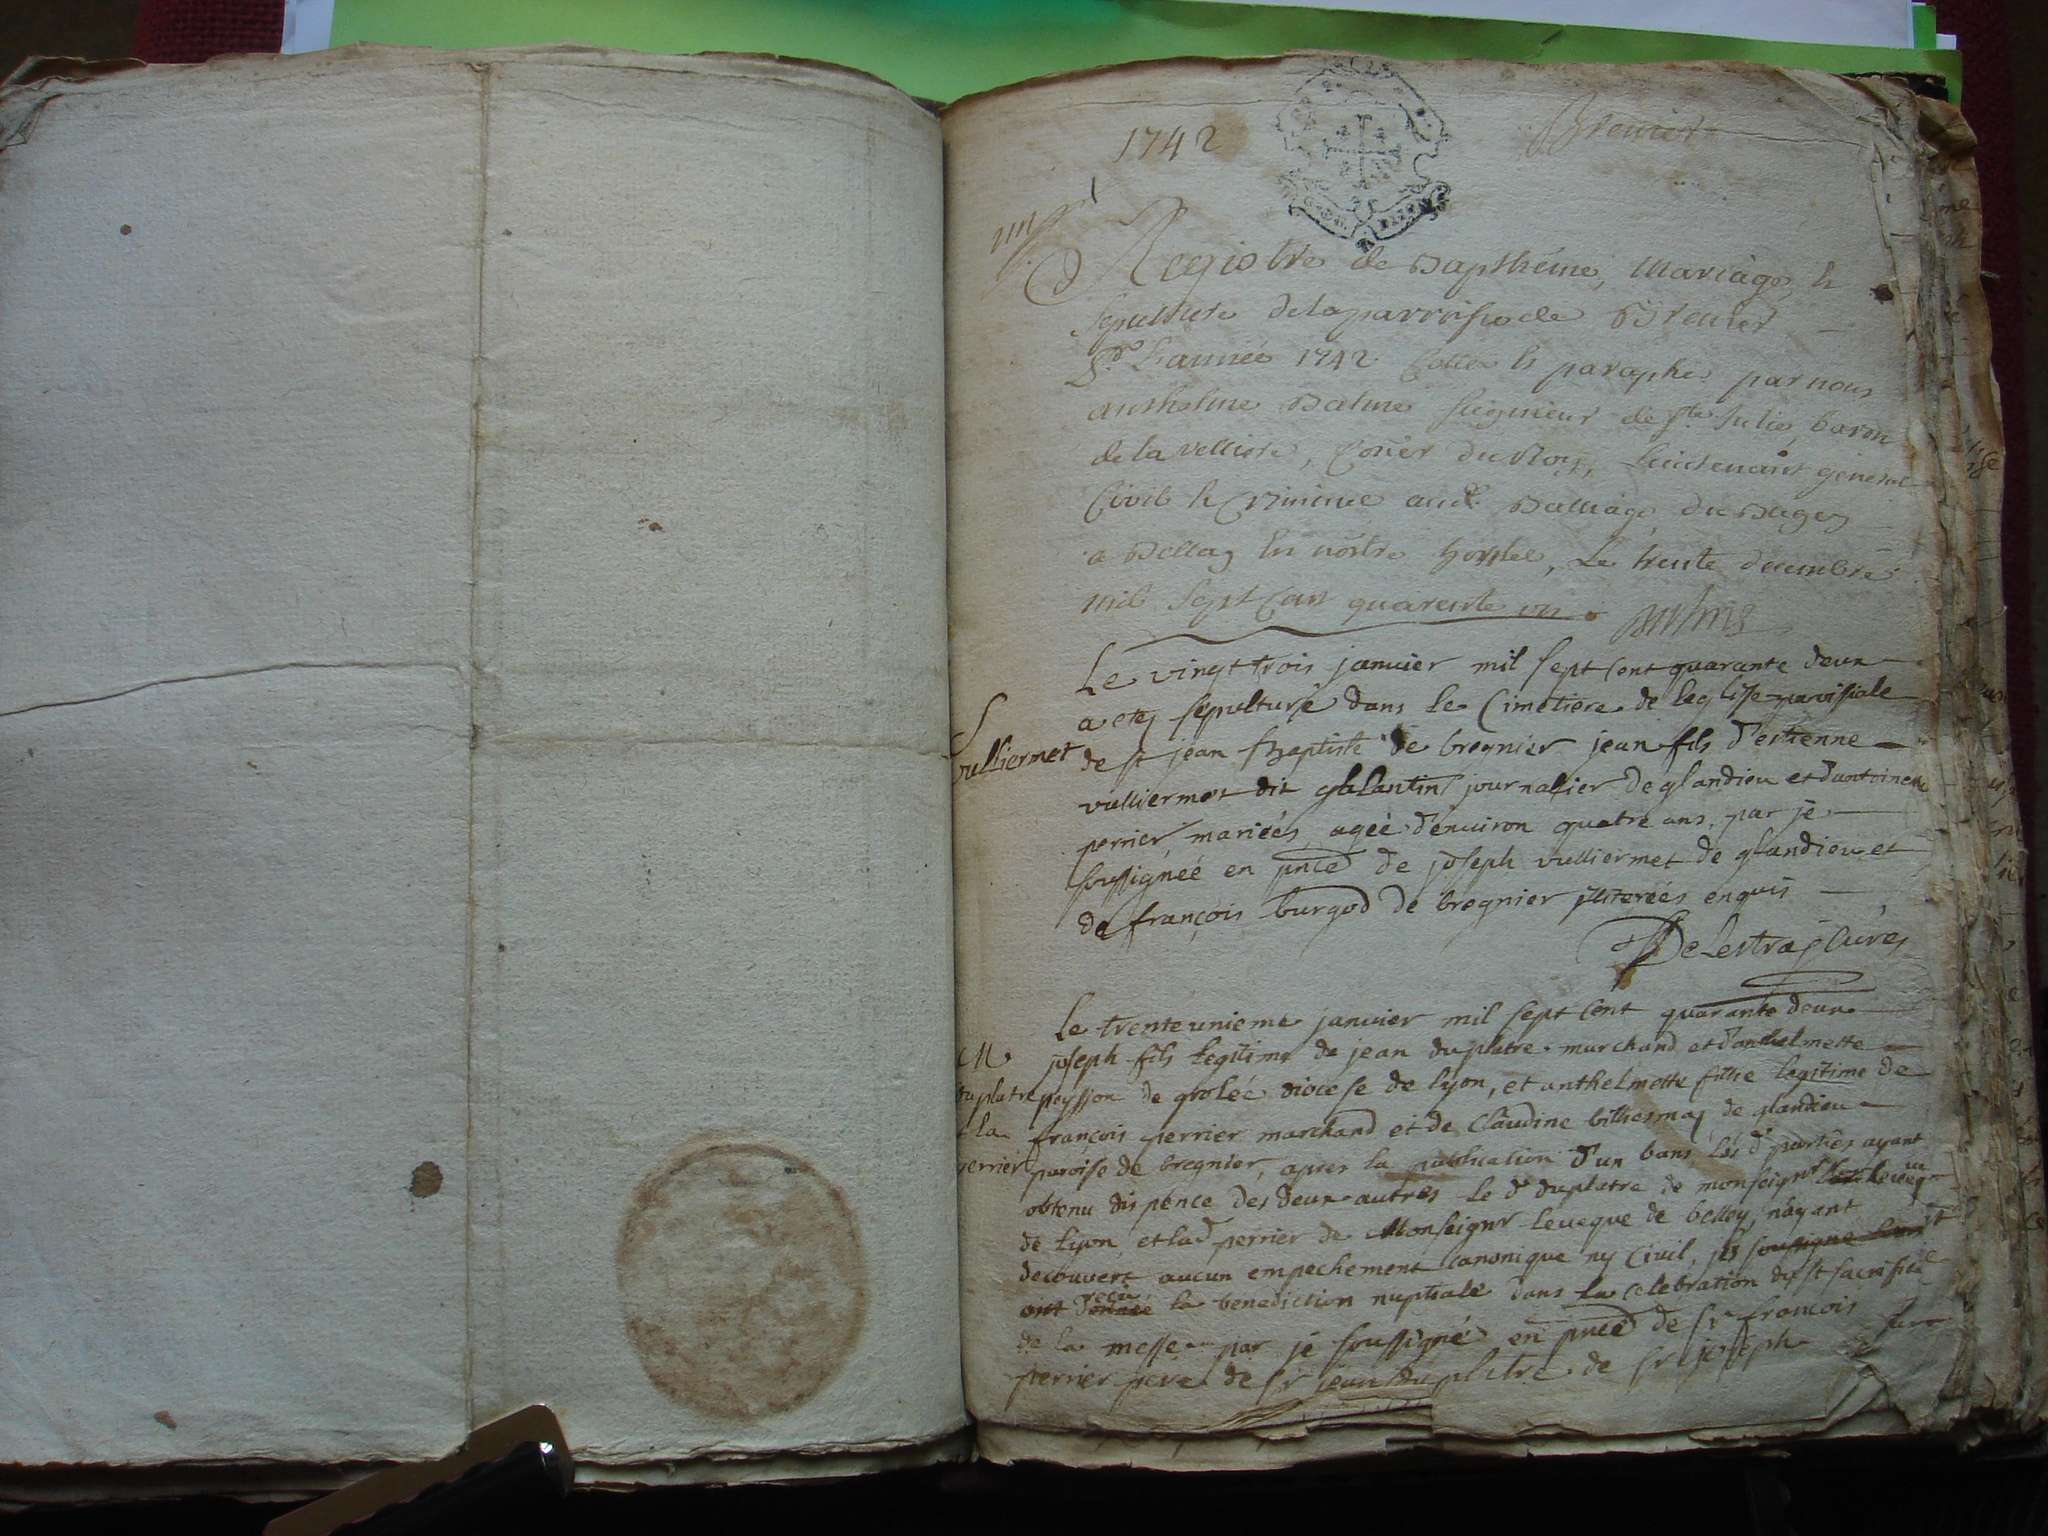 1742
Brenier
un
Registre de Bapthême, Mariage, &
sepulture de la parroisse de Brenier
pr L'année 1742 Cotté & paraphé par nous
anthelme Balme seigneur de Ste Julie, baron
de la velliere, Coner du Roy, Lieutenant general
Civil & Criminel au Balliage du Bugey
a Belley En nôtre hostel, Le trente decembre
mil Sept Cent quarente un
Balme
Le vingt trois janvier mil sept cent quarante deux
a etej sépulturé dans le Cimetiere de leglise paroissiale
S
de st jean Baptiste de bregnier jean fils d'estienne
vulliermet
vulliermet dit galantin journalier de glandieu et d'antoinette
perrier, mariées, ageé d'environ quatre ans, par je
soussigneé en pnce de joseph vulliermet de glandieu et
de françois burgod de bregnier illitereés enquis
De Lestraz Curé
Le trente unieme janvier mil sept cent quarante deux
M
joseph fils legitime de jean duplatre marchand et d'anthelmette
duplatre
peysson de groleé diocese de lyon, et anthelmette fillie legitime de
la
françois perrier marchand et de Claudine bithesmaj de glandieu
perrier
paroise de bregnier, apres la publication d'un bans les d. parties ayant
obtenu dispence des deux autres le d. duplatre de monseignr
de lyon, et la d. perrier de Monseignr leveque de belley, nâyant
decouvert aucun empechement canonique ny Civil, soussigné
ont donné recu la benediction nuptiale dans la celebration du st sacrifice
de la messe par je soussigné en pnce de sr françois
perrier pere de sr jean duplatre de sr joseph